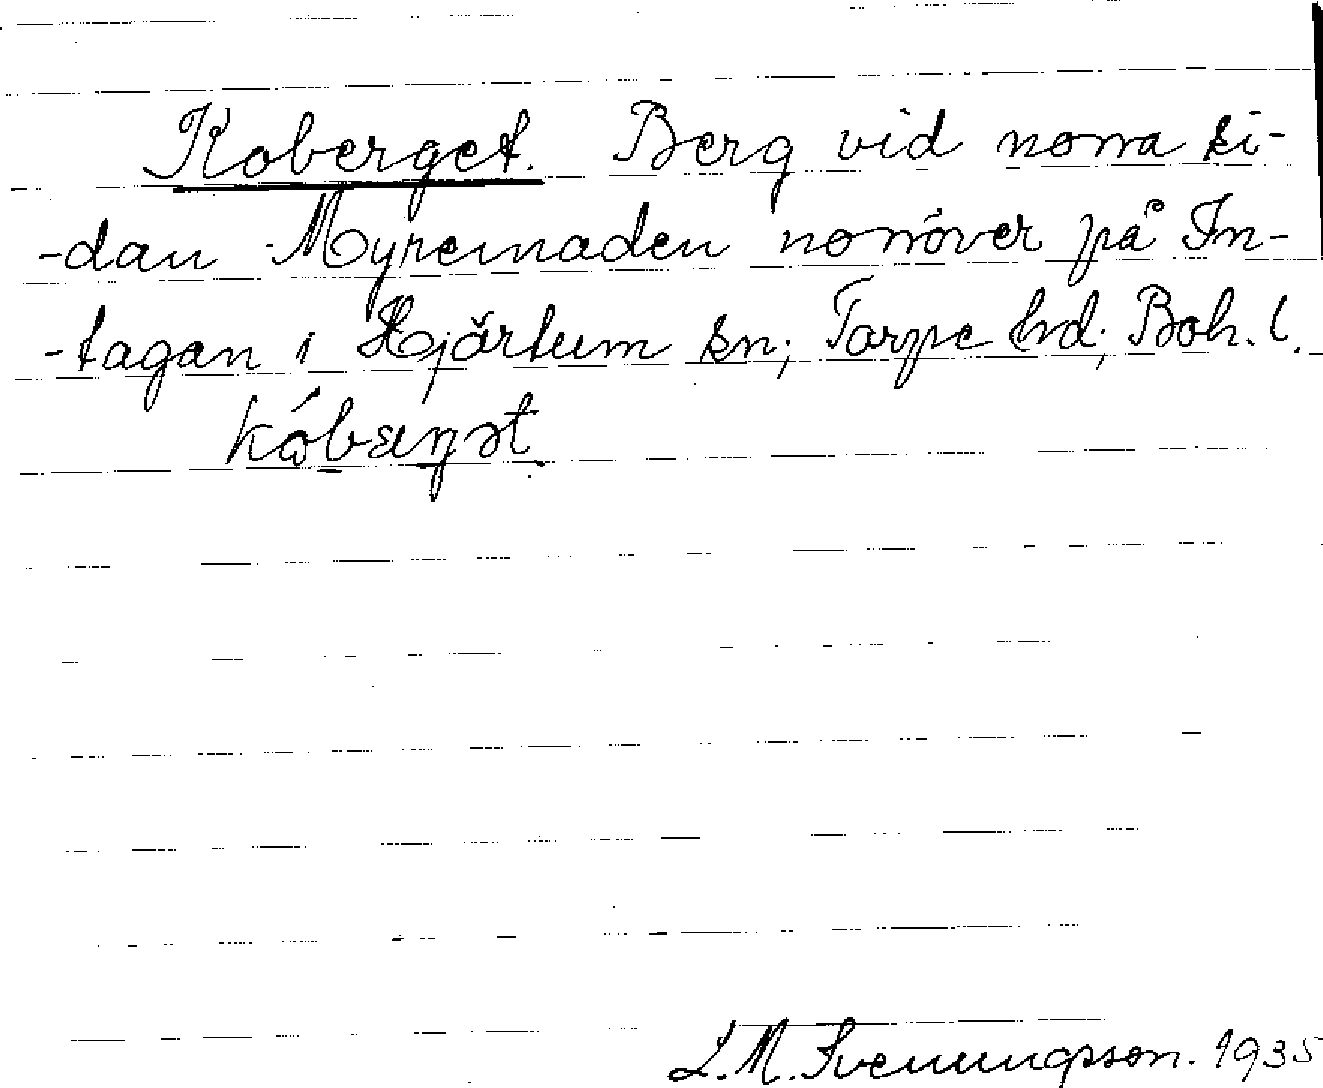 Koberget. Berg vid norra si-
-dan Myremaden norröver på In-
-tagan i Hjärtum sn; Torpe hd; Boh. l.
kóbæŋət
L. M. Svenungsson. 1935